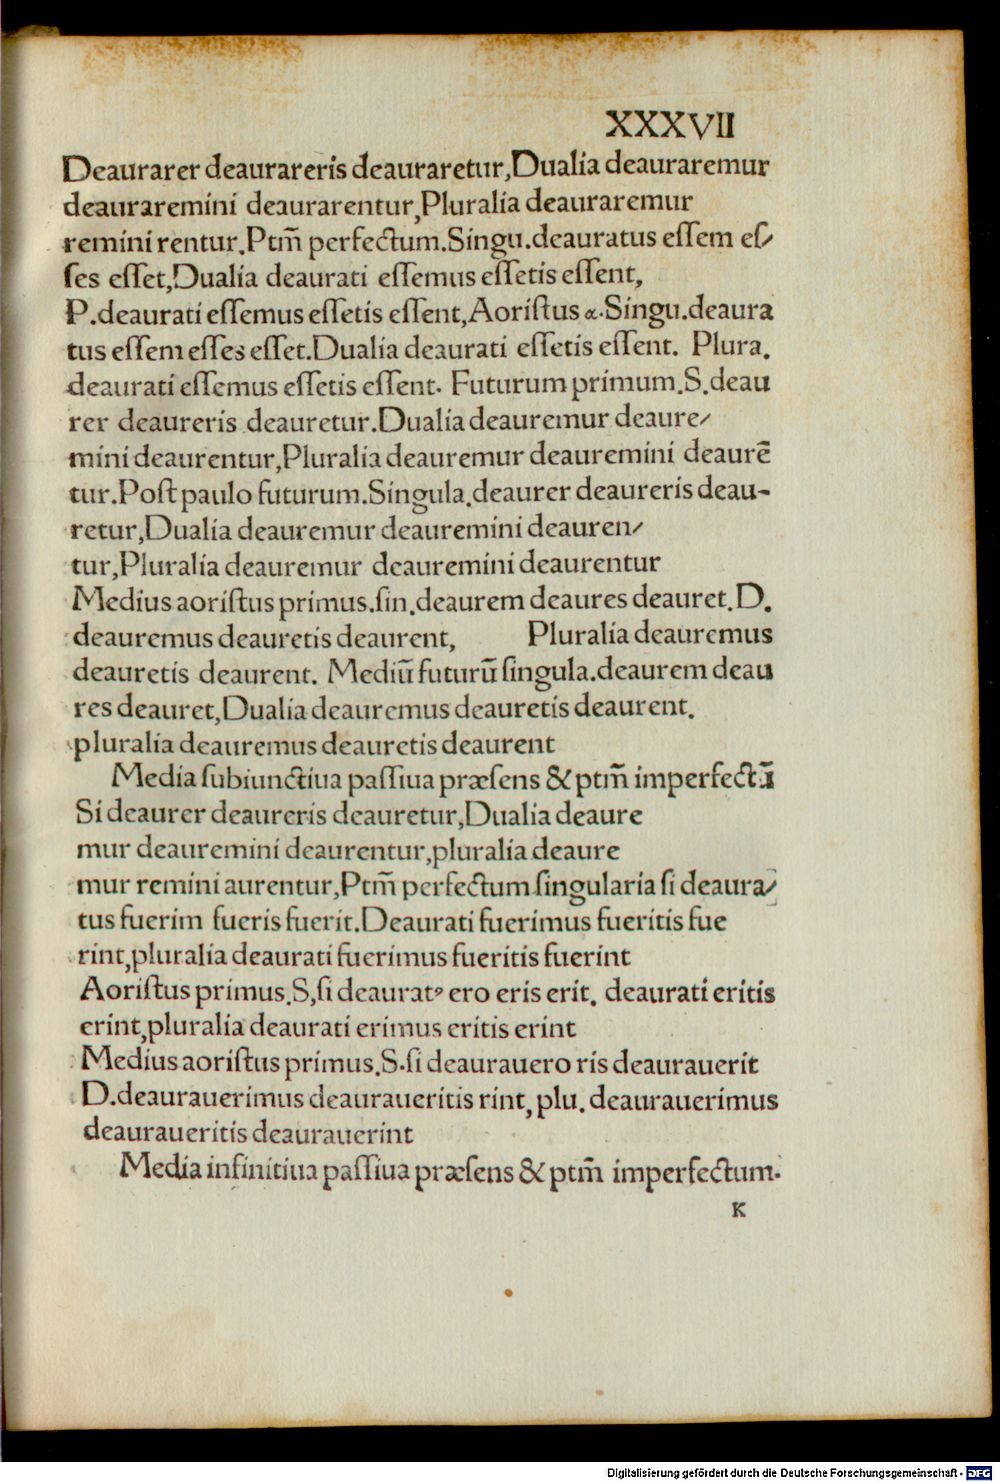 XXXVII
Deaurarer deaurareris deauraretur,Dualia deauraremur
deauraremini deaurarentur,Pluralia deauraremur
remini rentur.Ptm̃ perfectum.Singu.deauratus eſſem eſ/
ſes eſſet,Dualia deaurati eſſemus eſſetis eſſent,
P.deaurati eſſemus eſſetis eſſent,Aoriſtus α.Singu.deaura
tus eſſem eſſes eſſet.Dualia deaurati eſſetis eſſent. Plura.
deaurati eſſemus eſſetis eſſent. Futurum primum.S.deau
rer deaureris deauretur.Dualia deauremur deaure/
mini deaurentur,Pluralia deauremur deauremini deaurē
tur.Poſt paulo futurum.Singula.deaurer deaureris deau-
retur,Dualia deauremur deauremini deauren/
tur,Pluralia deauremur deauremini deaurentur
Medius aoriſtus primus.ſin.deaurem deaures deauret.D.
deauremus deauretis deaurent, Pluralia deauremus
deauretis deaurent. Mediū futurū ſingula.deaurem deau
res deauret,Dualia deauremus deauretis deaurent.
pluralia deauremus deauretis deaurent
Media ſubiunctiua paſſiua præſens & ptm̃ imperfectū
Si deaurer deaureris deauretur,Dualia deaure
mur deauremini deaurentur,pluralia deaure
mur remini aurentur,Ptm̃ perfectum ſingularia ſi deaura/
tus fuerim fueris fuerit.Deaurati fuerimus fueritis fue
rint,pluralia deaurati fuerimus fueritis fuerint
Aoriſtus primus.S,ſi deauratꝰ ero eris erit. deaurati eritis
erint,pluralia deaurati erimus eritis erint
Medius aoriſtus primus.S.ſi deaurauero ris deaurauerit
D.deaurauerimus deauraueritis rint, plu. deaurauerimus
deauraueritis deaurauerint
Media infinitiua paſſiua præſens & ptm̃ imperfectum.
K
Digitalisierung gefördert durch die Deutsche Forschungsgemeinschaft - DFG